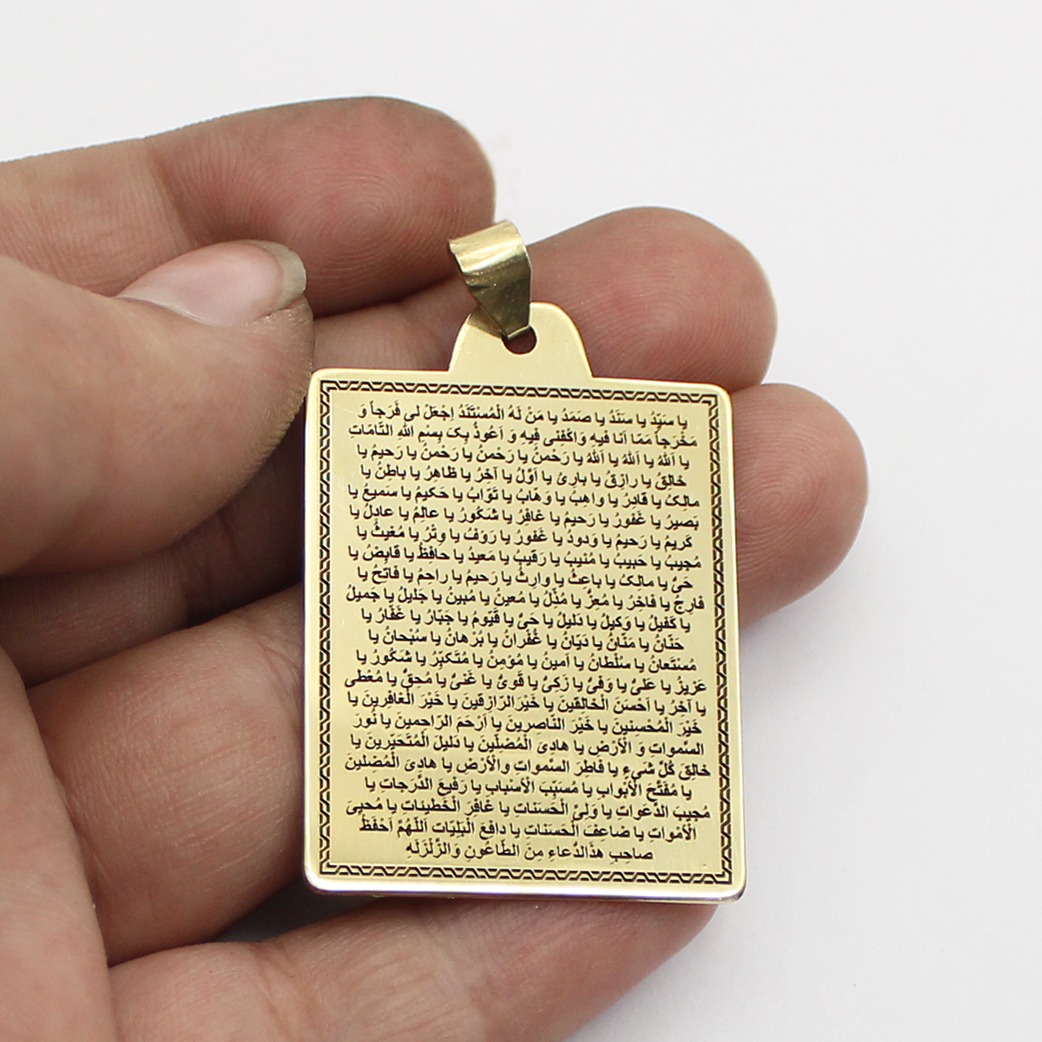 يا سَيِّدُ يا سَنَدُ يا صَمَدُ يا مَنْ لَهُ الْمُسْتَنَدُ اِجْعَلْ لى فَرَجاً وَ
مَخْرَجاً مَمّا اَنا فيهِ وَاكْفِنى فِيهِ وَ اَعُوذُ بِکَ بِسْمِ اللهِ التّامّاتِ
يا اَللهُ يا اَللهُ يا اَللهُ يا رَحْمنُ يا رَحْمنُ يا رَحْمنُ يا رَحيمُ يا
خالِقُ يا رازِقُ يا بارِئ يا اَوَّلُ يا آخِرُ يا ظاهِرُ يا باطِنُ يا
مالِکُ يا قادِرُ يا واهِبُ يا وَهّابُ يا تَوّابُ يا حَكيمُ يا سَميعُ يا
بَصيرُ يا غَفورُ يا رَحيمُ يا غافِرُ يا شَكُورُ يا عالِمُ يا عادِلُ يا
كَريمُ يا رَحيمُ يا وَدودُ يا غَفورُ يا رَوَفُ يا وِتْرُ يا مُغيثُ يا
مُجيبُ يا حَبيبُ يا مُنيبُ يا رَقيبُ يا مَعيدُ يا حافِظُ يا قابِضُ يا
حَىُّ يا مالِکُ يا باعِثُ يا وارِثُ يا رَحيمُ يا راحِمُ يا فاتِحُ يا
فارِجُ يا فاخَرُ يا مُعِزُّ يا مُذِّلُ يا مُعينُ يا مُبينُ يا جَليلُ يا جَميلُ
يا كَفيلُ يا وَكيلُ يا دَليلُ يا حَىُّ يا قَيّومُ يا جَبّارُ يا غَفّارُ يا
حَنّانُ يا مَنّانُ يا دَيّانُ يا غُفْرانُ يا بُرْهانُ يا سُبْحانُ يا
مُسْتَعانُ يا سُلْطانُ يا اَمينُ يا مُؤمِنُ يا مُتَكَبِّرُ يا شَكُورُ يا
عَزيزُ يا عَلىُّ يا وَفىُّ يا زَكِىُّ يا قَوىُّ يا غَنىُّ يا مُحِقُّ يا مُعْطى
يا آخِرُ يا اَحْسَنَ الْخالِقينَ يا خَيْرَالرّازِقينَ يا خَيْرَ الْغافِرينَ يا
خَيْرَ الْمُحْسِنينَ يا خَيْرَ النّاصِرينَ يا اَرْحَمَ الرّاحِمينَ يا نُورَ
السَّمواتِ وَ الْاَرْضِ يا هادِىَ الْمُضِلّينَ يا دَليلَ الْمُتَحَيِّرينَ يا
خالِقَ كُلِّ شَىءٍ يا فاطِرَ السَّمواتِ والْاَرْضِ يا هادِىَ الْمُضِلينَ
يا مُفَتِّحَ الْاَبْوابِ يا مُسَبِّبَ الْاَسْبابِ يا رَفيعَ الدَّرَجاتِ يا
مُجيبَ الدَّعَواتِ يا وَلِىَّ الْحَسَناتِ يا غافِرَ الْخَطيئاتِ يا مُحيِىَ
الْاَمْواتِ يا ضاعِفَ الْحَسَناتِ يا دافِعَ الْبَلِيّاتِ اَللّهُمَّ احْفَظْ
صاحِبِ هذَالدُّعاءِ مِنَ الطّاعُونِ وَالزِّلْزَلَهِ